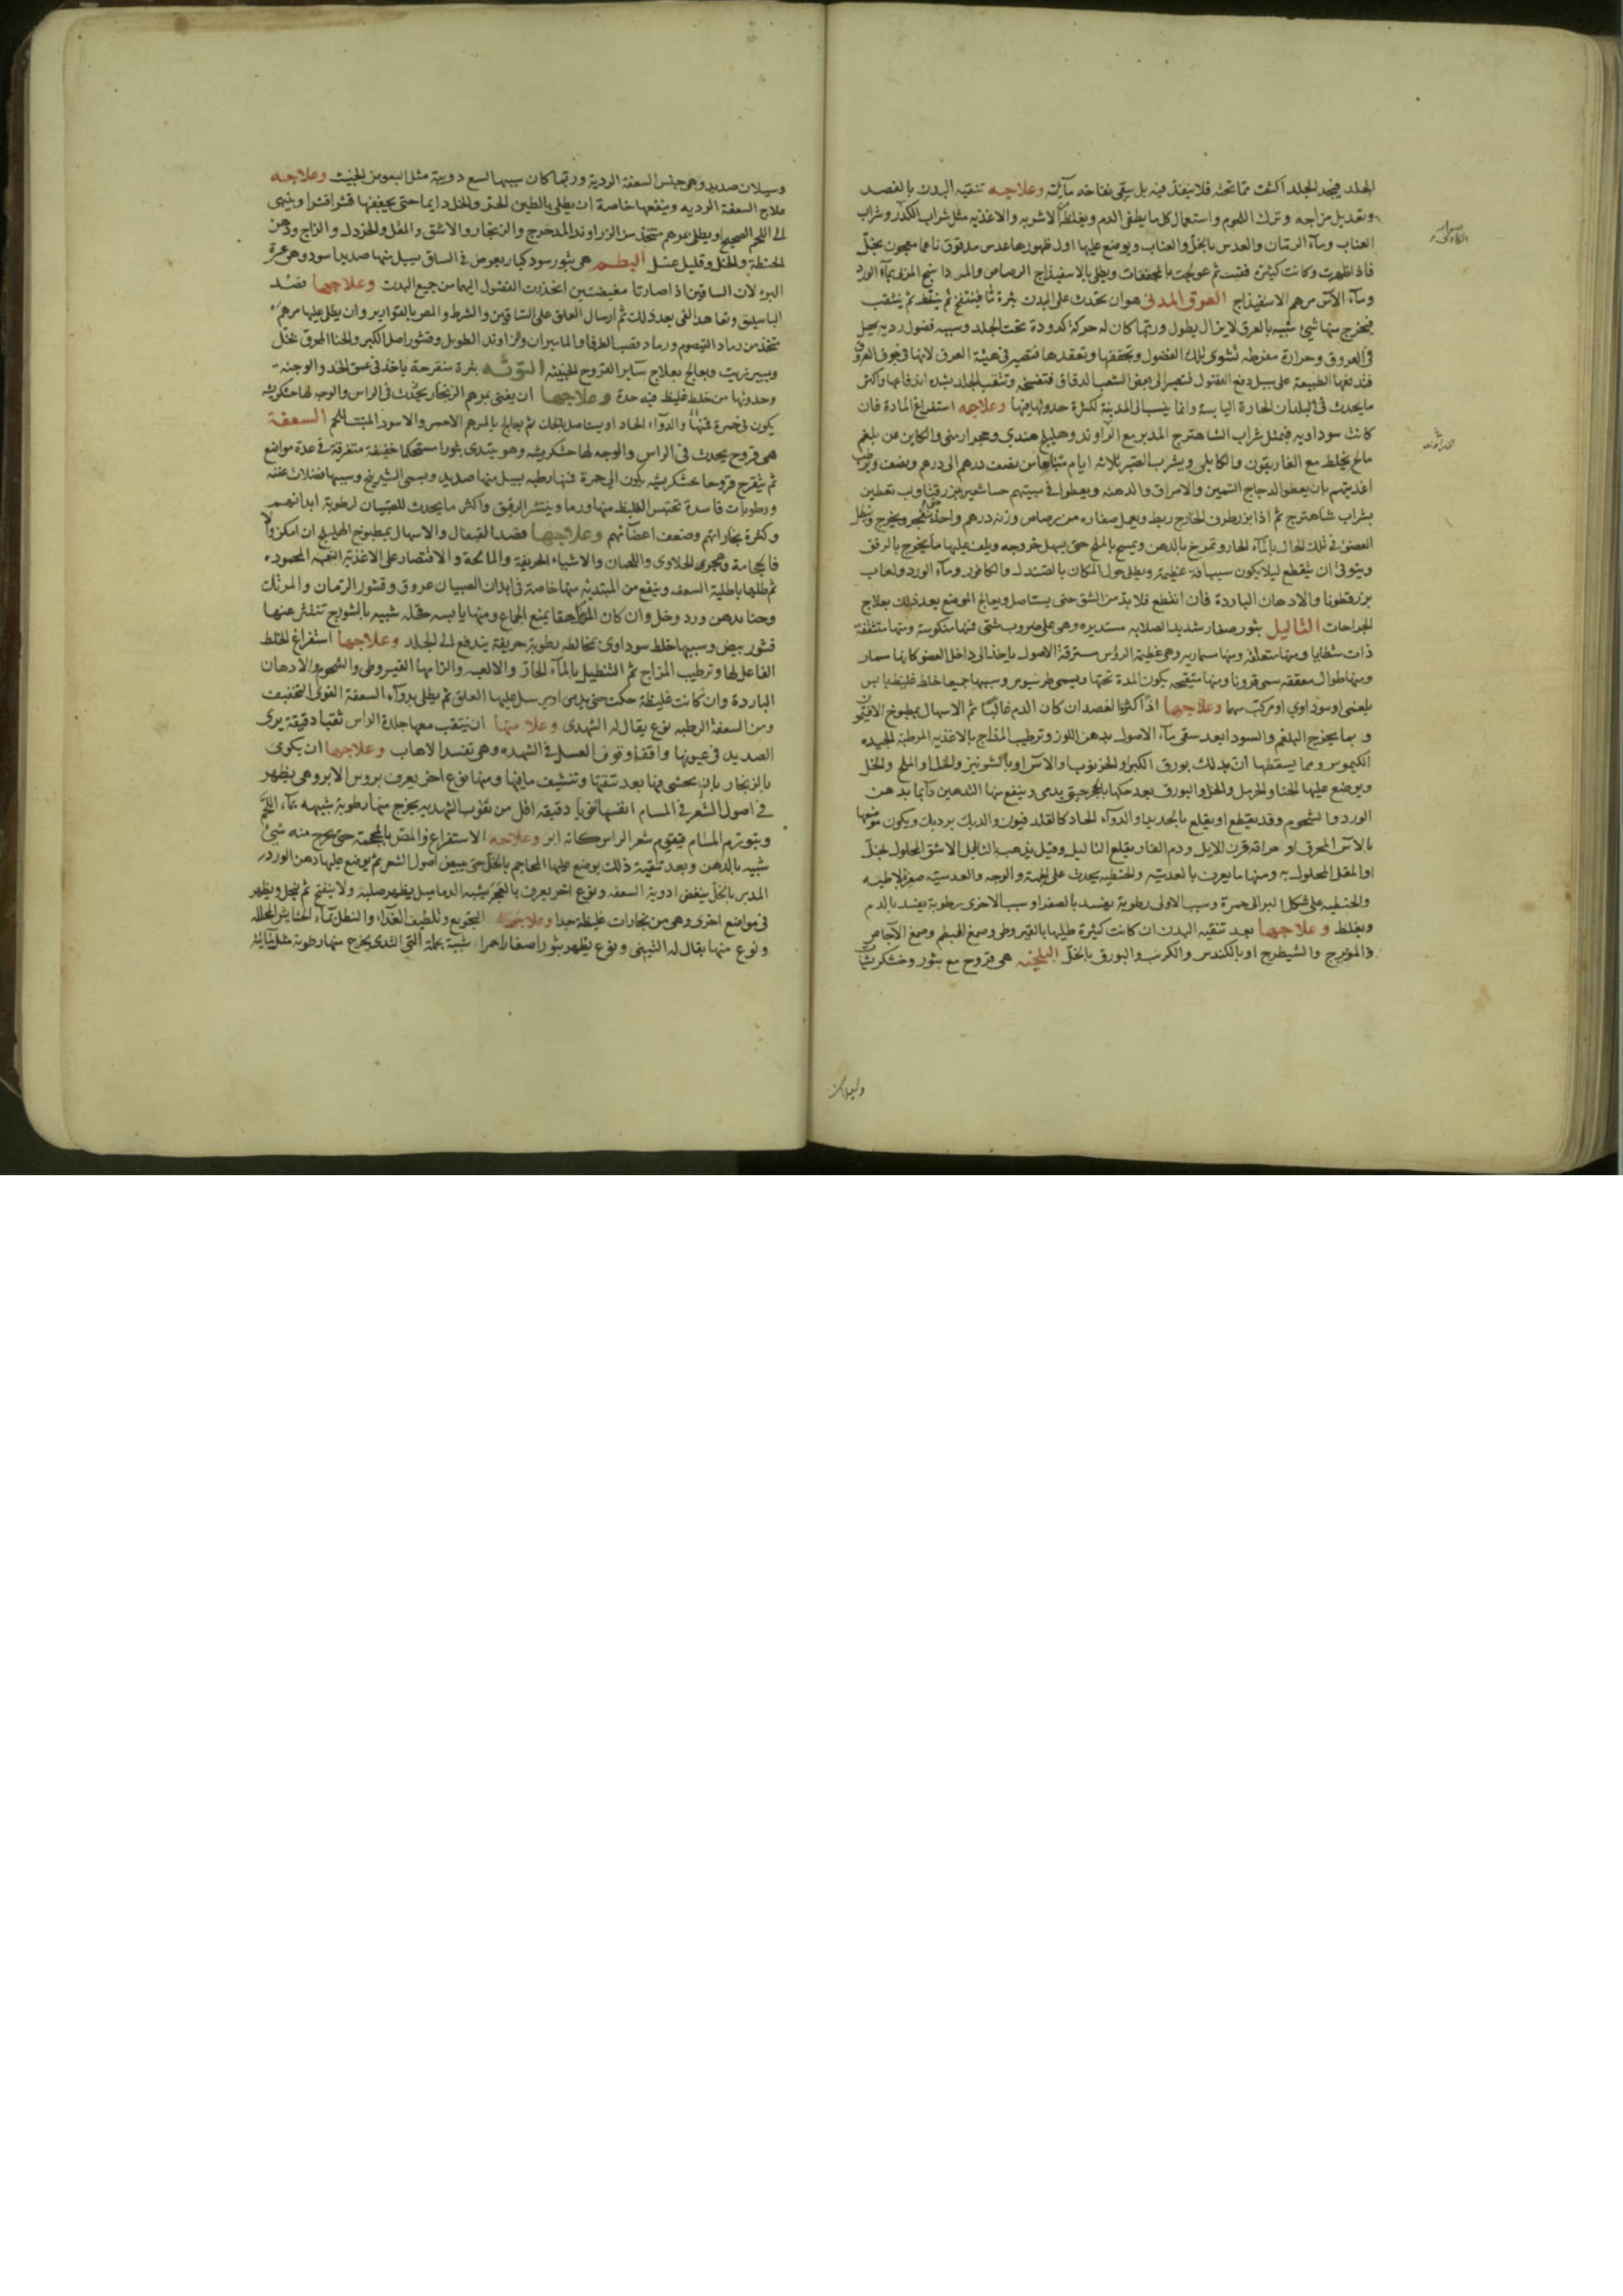 الجلد فيجد الجلد اكثف مما تحته فلا ينفذ فيه بل يبقى نفاخه مآئيته وعلاجه تنقيه البدن بالفصد
وتعديل مزاجه وترك اللحوم واستعمال كل ما يطفى الدم ويغلظه الاشربه والاغذيه مثل شراب الكدر وشراب
العناب ومآء الرمان والعدس بالخل والعناب ويوضع عليها اول ظهورها عدس مدقوق ناعما معجون بخل
فاذا ظهرت وكانت كثيرة فقبت ثم عولجت بالمجففات ويطلى بالاسفيذاج الرصاص والمرداسنج المربى بمآء الورد
ومآء الآس مرهم الاسفيذاج العرق المدنى هو ان يحدث على البدن بثرة ثا فينتفخ ثم يتنقط ثم يتثقب
فيخرج منها شئ شبيه بالعرق لا يزال يطول وربما كان له حركة كدودة تحت الجلد وسببه فضول رديه يحصل
فى العروق وحرارة مفرطه تشوى تلك الفضول وتجففها وتعقدها فتصير فى هيئة العرق لانها فى جوف العروق
فتدفعها الطبيعة على سبيل دفع الفضول فتصير الى بعض الشعب الدقاق فتنفسخ وتثقب الجلد بشدة اندفاعها واكثر
ما يحدث فى البلدان الحارة اليابسة وانما ينسب الى المدينة لكثرة حدوثها فيها وعلاجه استفراغ المادة فان
كانت سوداويه فبمثل شراب الشاهترج المدبر مع الراوند وهليلج هندى وحجر ارمنى والكاين من بلغم
مالح يخلط مع الغاريقون والكابلى ويشرب الصبر ثلاثه ايام متتابعا من نصف درهم الى درهم ونصف ويرطب
اغذيتهم بان يعطوا الدجاج السمين والامراق والدهنه ويعطوا فى مبيتهم حسا شعير وبزر قثا ولب بقطين
بشراب شاهترج ثم اذا برز طرف الخارج ربط وبعمل صفاره من رصاص وزنه درهم واحد
العضو فى تلك الحال بالمآء الحار وتمرخ بالدهن ويمسح بالملح حتى يسهل خروجه ويلف عليها ما يخرج بالرفق
ويتوقى ان ينقطع ليلا يكون سببا فة عظيمة ويطلى حول المكان بالصندل والكافور ومآء الورد ولعاب
بزر قطونا والادهان الباردة فان انقطع فلا بد من الشق حتى يستاصل ويعالج الموضع بعد ذلك بعلاج
الجراحات الثاليل بثور صغار شديد الصلابه مستديره وهى على ضروب شتى فمنها منكوسة ومنها متشققة
ذات شظايا ومنها متعلقة ومنها مسماريه وهى عظيمة الرؤس مسترقة الاصول ياخذ الى داخل العضو كانها مسمار
ومنها طوال معققه تسمى قرونا ومنها متقيحه يكون المدة تحتها ويسمى طرسيوس وسببها جميعا خلط غليظ يابس
بلغمى او سوداوى او مركب منهما وعلاجها اذا كثرت الفصد ان كان الدم غالبا ثم الاسهال بمطبوخ الافتيمون
و بما يخرج البلغم والسودا بعد سقى مآء الاصول بدهن اللوز وترطيب المزاج بالاغذيه المرطبة الجيده
الكيموس ومما يسقطها ان يدلك بورق الكبر او الخرنوب والآس او بالشونيز والخل او الملح والخل
ويوضع عليها الحنا والخرمل والخل والبورق بعد حكها بالحجر حتى يدمى وينفع منها التدهين دآئما بدهن
الورد والشحوم وقد يقطع او يقلع بالحديد او الدوآء الحاد كالقلد فيون والديك برديك ويكون موضعها
بالآس المحرق او حراقة قرن الايل ودم الفار يقلع الثاليل وقيل يذهب بالثاليل الاشق المحلول بخل
او المقل المحلول به ومنها ما يعرف بالعدسيه والحنطيه يحدث على الجبهة والوجه والعدسيه صغر لاطيه
والحنطيه على شكل البر الى حمرة وسبب الاولى رطوبة يفسد بالصفرا وسبب الاخرى رطوبة يفسد بالدم
ويغلظ وعلاجها بعد تنقيه البدن ان كانت كثيرة طليها بالقيروطى وصمغ البطم وصمغ الآجاص
والمويزج والشيطرج او بالكندس والكرنب والبورق بالخل البلخيه هى قروح مع بثور وخشكريشات
وسيلان
وسيلان صديد وهى جنس السعفة الردية وربما كان سببها لسع دويبة مثل البعوض الخبيث وعلاجه
علاج السعفة الرديه وينفعها خاصة ان يطلى بالطين الحر والخل دايما حتى يجففها قشرا قشرا وينهى
الى اللحم الصحيح او يطلى بمرهم متخذ من الزراوند المدحرج والزنجار والاشق والمقل والخردل والزاج ودهن
الحنطة والخل وقليل عسل البطم هى بثور سود كبار يعرض فى الساق يسيل منها صديد اسود وهى عسرة
البرء لان الساقين اذا صارتا مغيضتين انحدرت الفضول اليهما من جميع البدن وعلاجها فصد
الباسليق وتعاهد القى بعد ذلك ثم ارسال العلق على الساقين والشرط والمص بالقوارير وان يطلى عليها مرهم
متخذ من رماد القيصوم ورماد قصب الطرفا والماميران والزراوند الطويل وقشور اصل الكبر والحنا المحرق بخل
ويسير زيت ويعالج بعلاج سآير القروح الخبيثه التوثه بثرة متقرحة ياخذ فى عمق الخد والوجنه
وحدوثها من خلط غليظ فيه حدة وعلاجها ان يفنى بمرهم الزنجار يحدث فى الراس والوجه لها خشكريشه
والدوآء الحاد او يستاصل بالحك ثم يعالج بالمرهم الاحمر والاسود المنبت للحم السعفة
هى قروح يحدث فى الراس والوجه لها خشكريشه وهو يبتدى بثورا مستحكما خفيفة متفرقة فى عدة مواضع
ثم يتقرح قروحا خشكريشيه يكون الى حمرة فمنها رطبه يسيل منها صديد ويسمى الشيرينج وسببها فضلات عفنه
ورطوبات فاسدة تحتبس الغليظ منها ورما وينتشر الرقيق واكثر ما يحدث للصبيان لرطوبة ابدانهم
وكثرة بخاراتهم وضعف اعضآئهم وعلاجها فصد القيفال والاسهال بمطبوخ الهليلج ان امكن والا
فالحجامة وهجرى الحلاوى واللحمان والاشياء الحريفة والمالحة والاقتصار على الاغذية التفهه المحموده
ثم طلها باطلية السعفه وينفع من المبتدئه منها خاصة فى ابدان الصبيان عروق وقشور الرمان والمرتك
وحنا بدهن ورد وخل وان كان المراهقا يمنع الجماع ومنها يابسه حقله شبيه بالشورج تنتثر عنها
قشور بيض وسببها خلط سوداوى يخالطه رطوبة حريفة يندفع الى الجلد وعلاجها استفراغ الخلط
الفاعل لها وترطيب المزاج ثم التنطيل بالمآء الحار والالعبه والزامها القيروطى والشحوم والادهان
الباردة وان كانت غليظة حكت حتى يدمى او يرسل عليها العلق ثم يطلى بدوآء السعفة القوى التجفيف
ومن السعفة الرطبه نوع يقال له الشهدى وعلامتها ان يتثقب معها جلدة الراس ثقبا دقيقة يرى
الصديد فى عيونها واقفا وقوف العسل فى الشهده وهى تفسد الاهاب وعلاجها ان يكوى
بالزنجار بان يحشى فيها بعد تنقيتها وتنشيف مافيها ومنها نوع آخر يعرف بروس الابر وهى يظهر
فى اصول الشعر فى المسام انفسها ثقوبا دقيقه اقل من ثقوب الشهديه يخرج منها رطوبة شبيهه بمآء اللحم
ويتورم المسام فيقوم شعر الراس كانه ابر وعلاجه الاستفراغ والمص بالمحجمة حتى يخرج منه شئ
شبيه بالدهن وبعد تنقيته ذلك يوضع عليها المحاجم بالخل حتى يبيض اصول الشعر ثم يوضع عليها دهن الورد
المدبر بالخل ببعض ادوية السعفه ونوع اخر يعرف بالعجر يشبه الدماميل يظهر صلبه ولا ينفتح ثم ينحل ويظهر
فى مواضع اخرى وهى من بخارات غليظة جدا وعلاجها التجويع وتلطيف الغذآء والنطل بمآء الحشايش المحلله
ونوع منها يقال له التينى ونوع يظهر بثورا صغارا حمرا شبيهة بحلمة الثدى يخرج منها رطوبة مثل مآئية